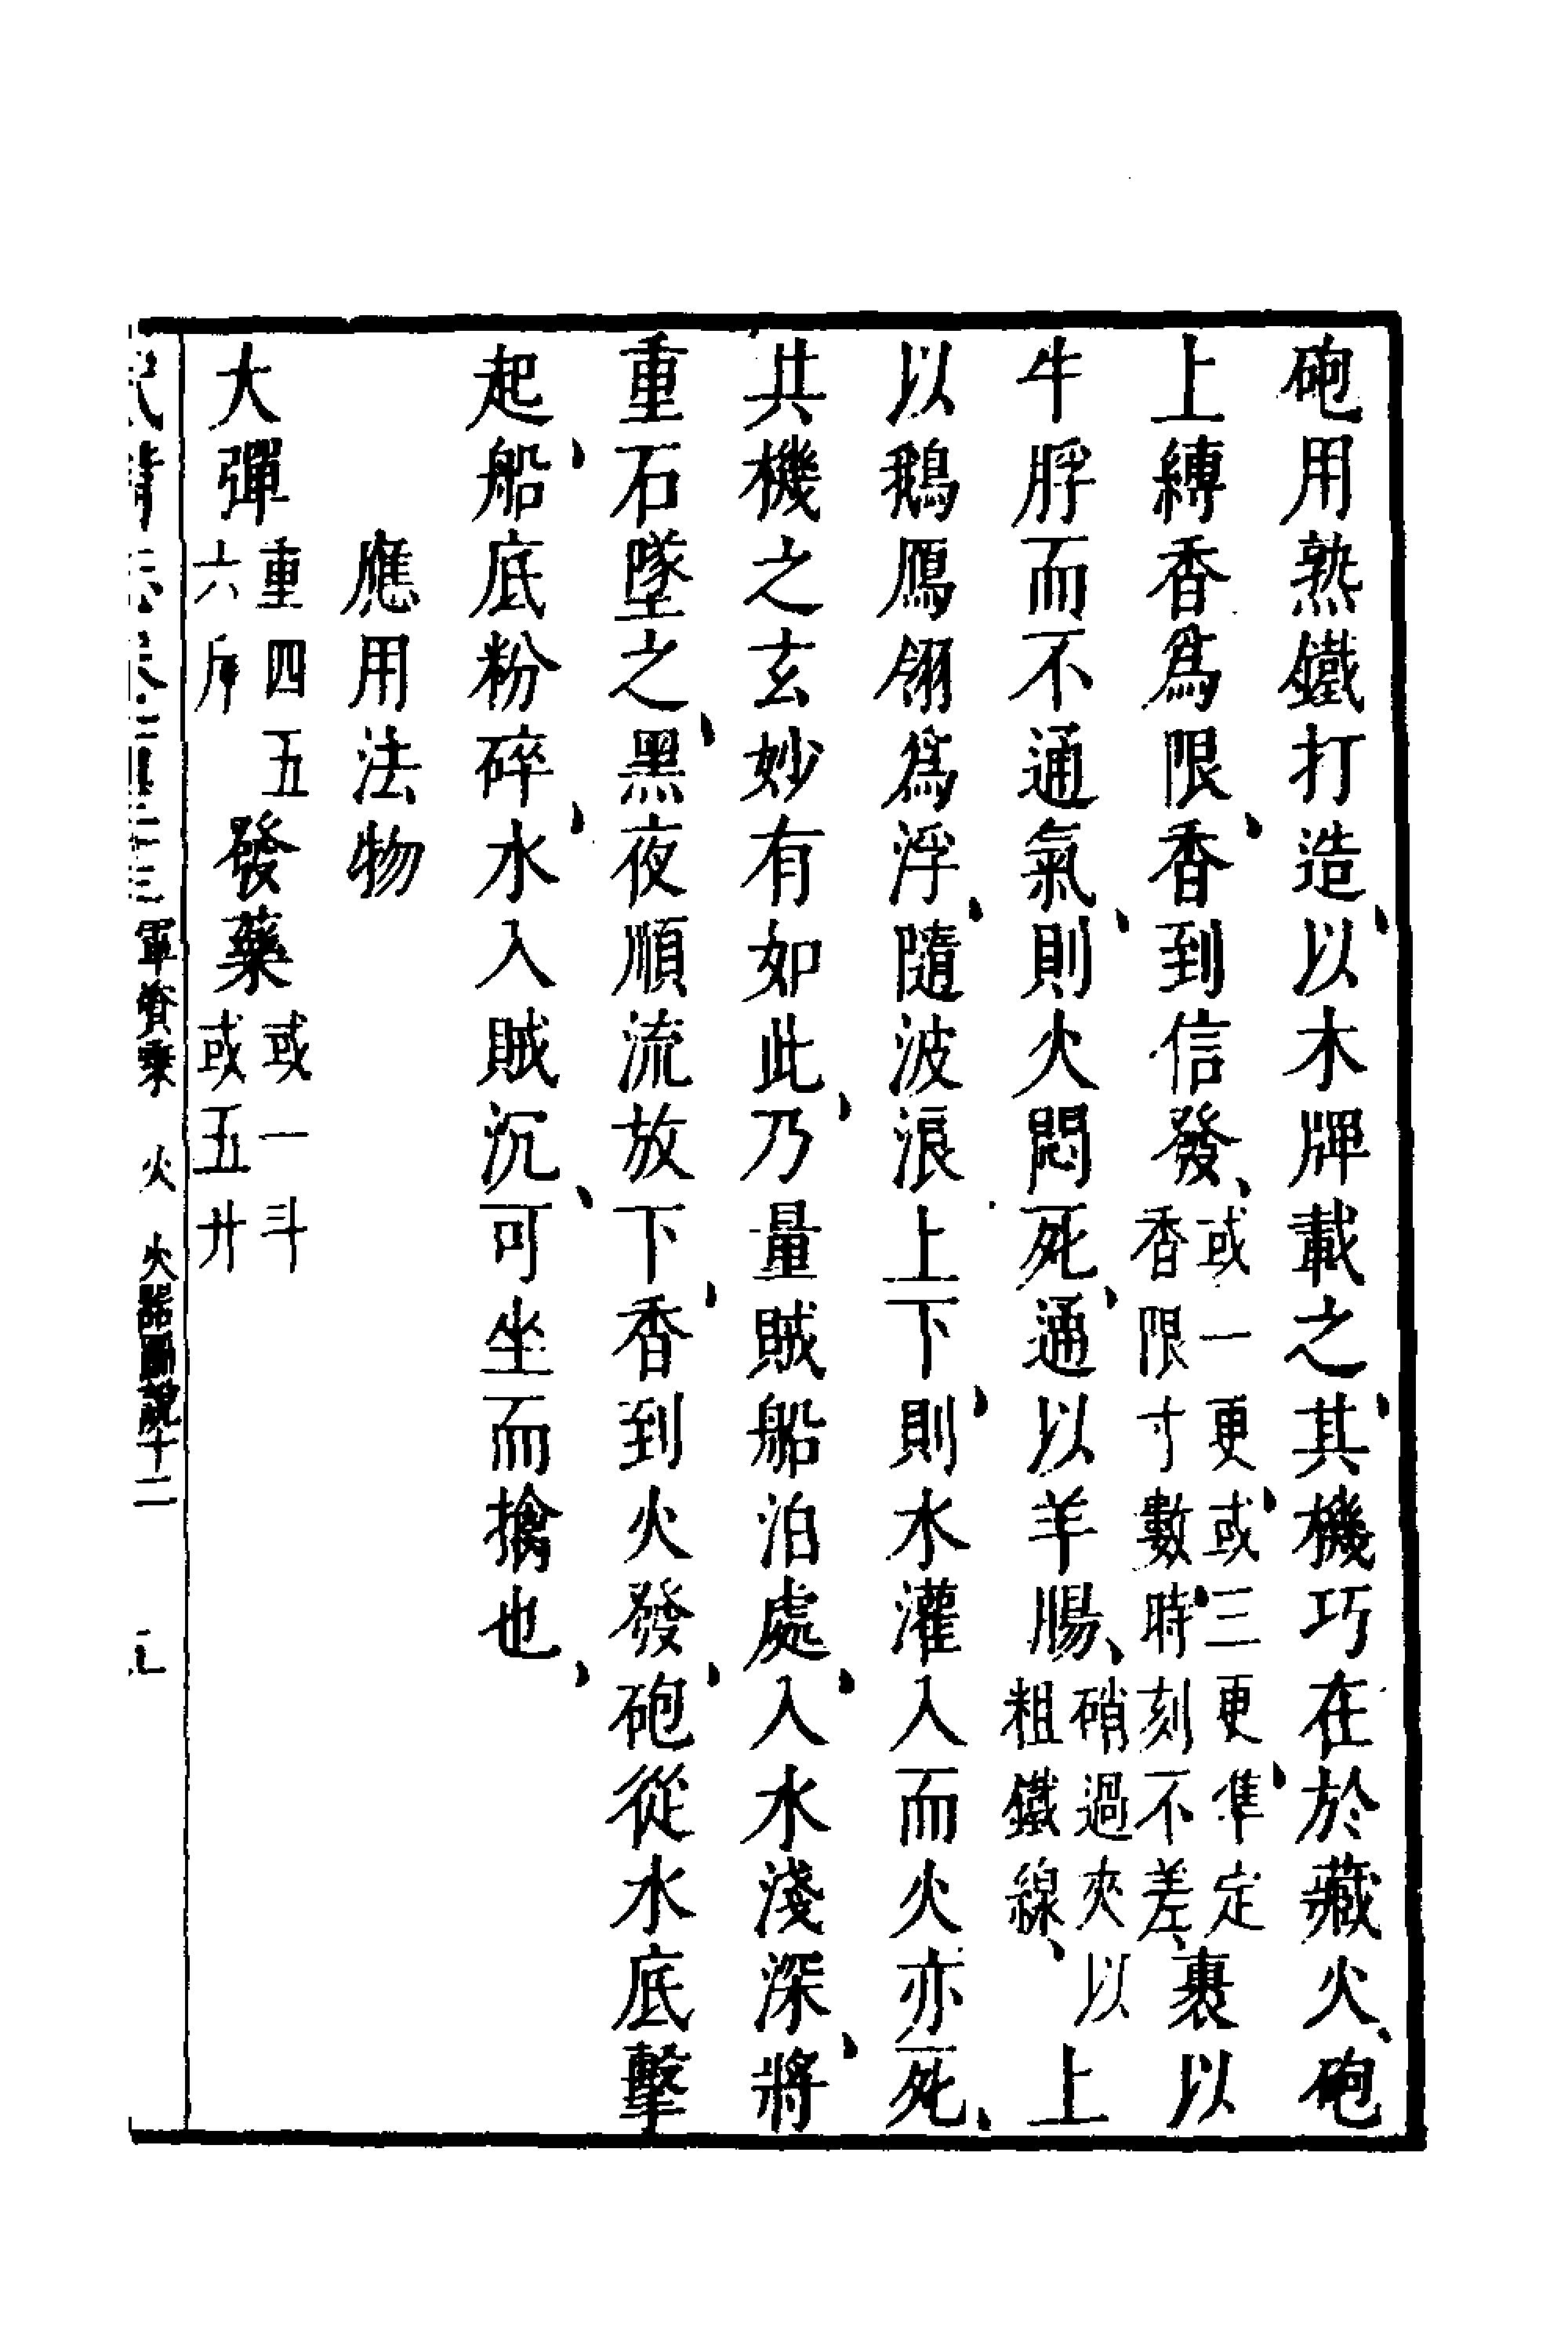 砲用熟鐵打造、以木牌載之、其機巧在於藏火、砲
上縛香爲限、香到信發、或一更、或三更、準定香限寸數、時刻不差、裹以
牛脬而不通氣、則火悶死、通以羊腸、硝過夾以粗鐵線、上
以鵝鴈翎爲浮、隨波浪上下、則水灌入而火亦死、
共機之玄妙有如此、乃量賊船泊處、入水淺深、將
重石墜之、黑夜順流放下、香到火發、砲從水底擊
起、船底粉碎、水入賊沉、可坐而擒也、
應用法物
大彈重四五六斤 發藥或一斗或五升
軍資乘 火 火器圖說十二